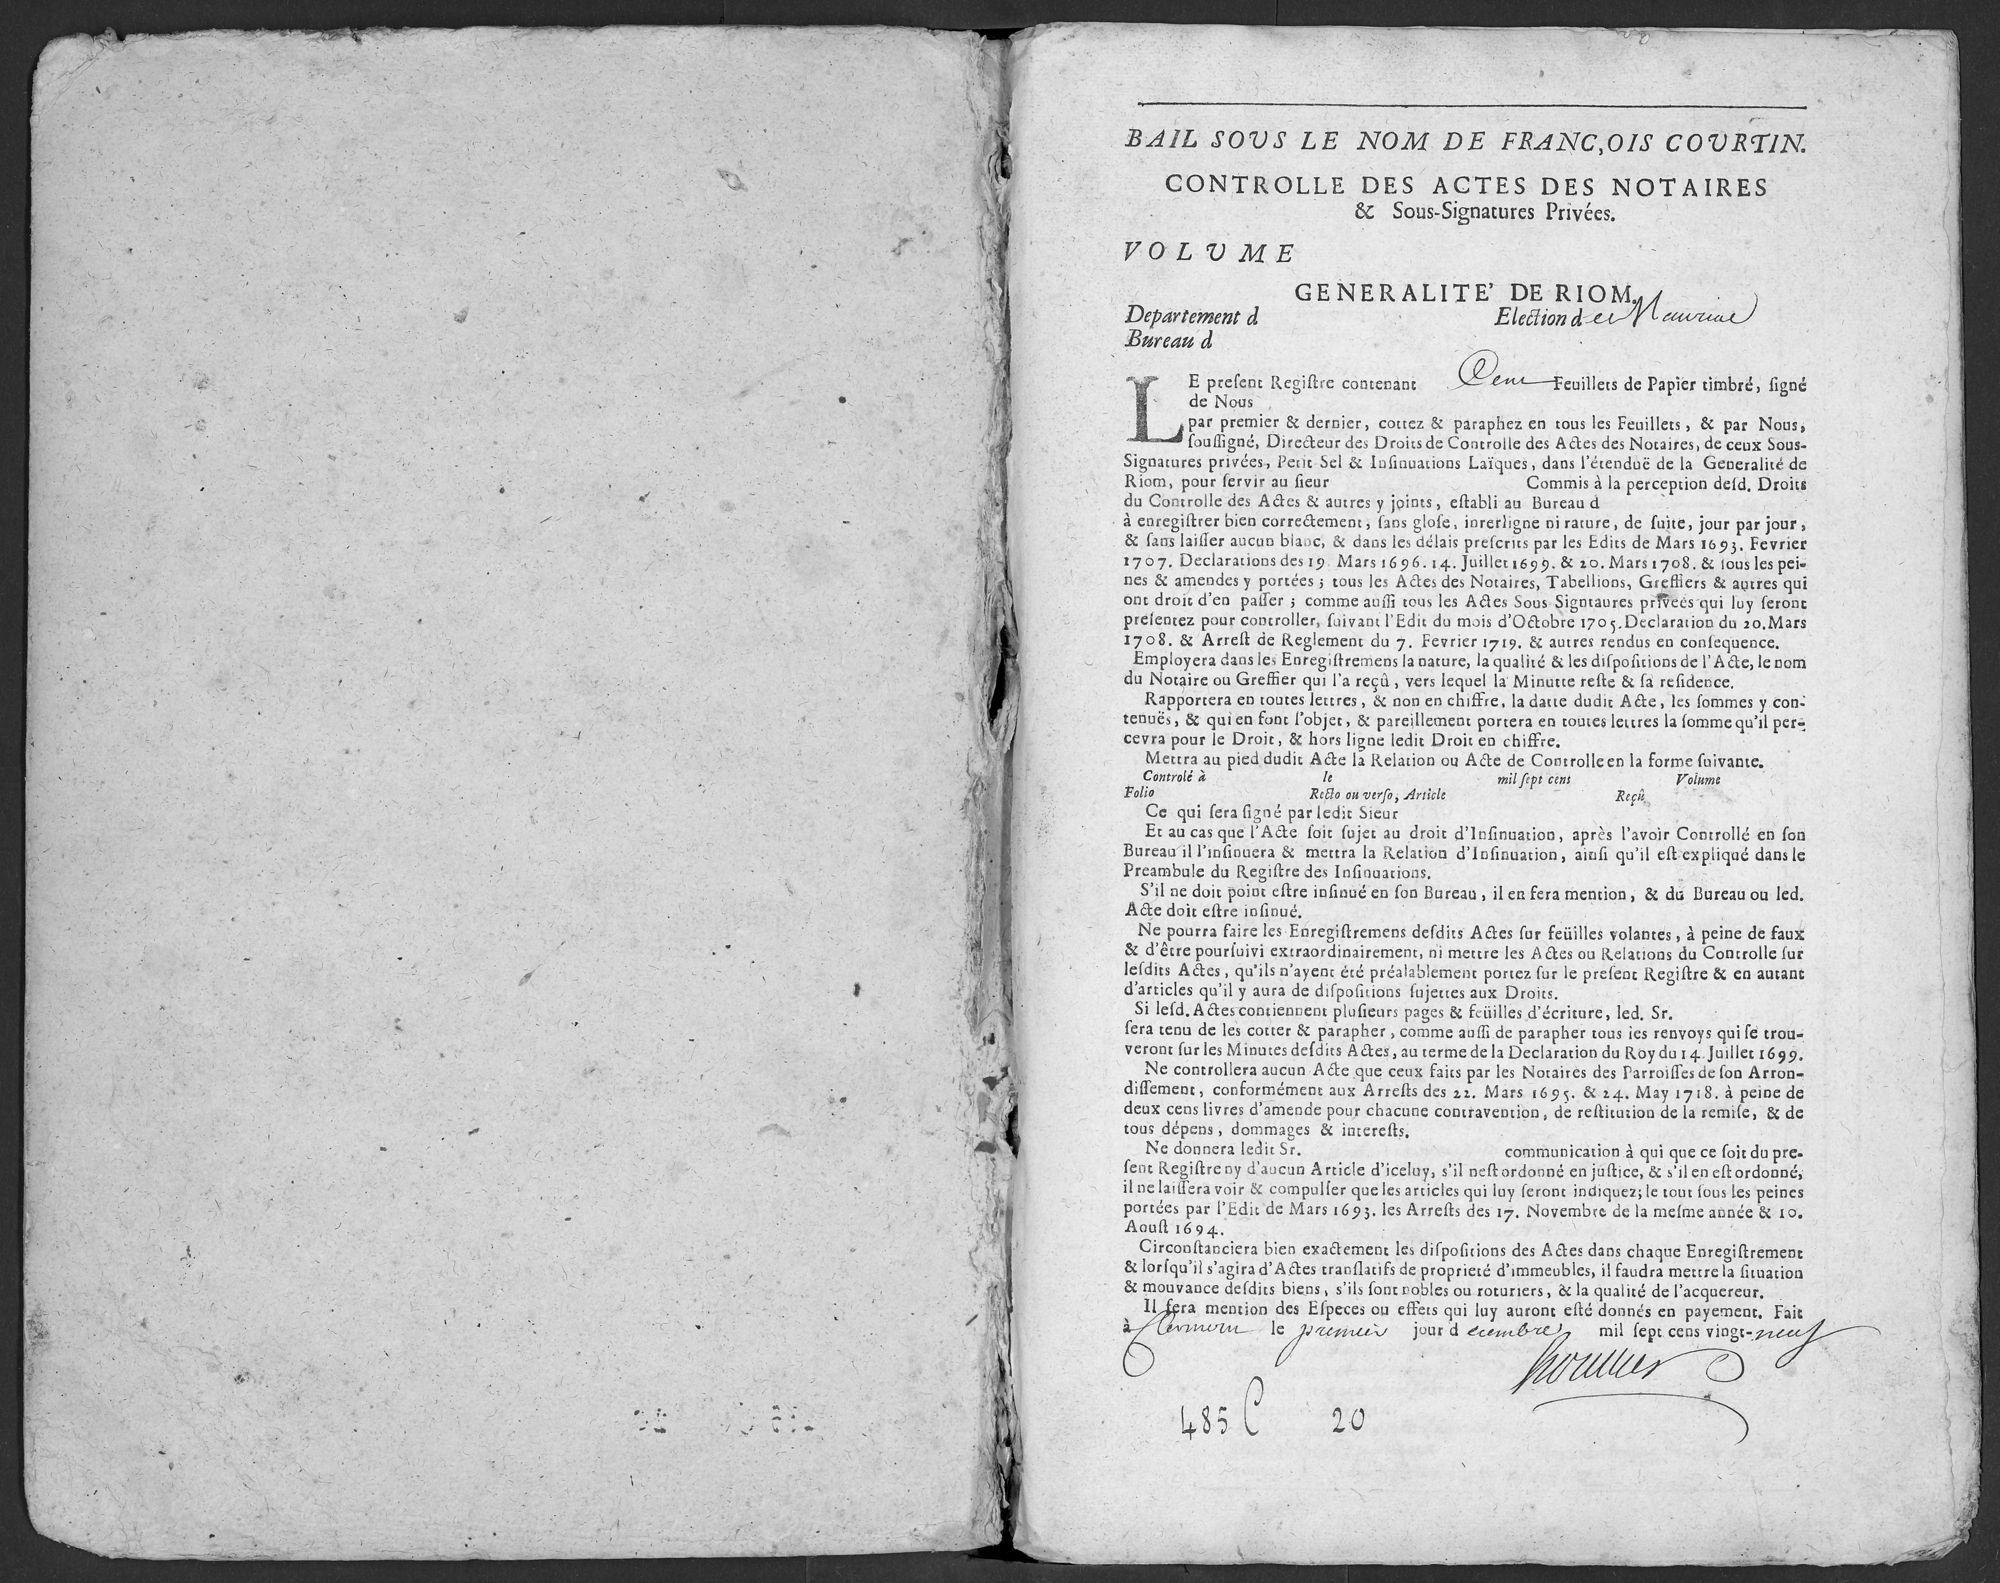 BAIL SOUS LE NOM DE FRANC,OIS COURTIN.
CONTROLLE DES ACTES DES NOTAIRES
& Sous-Signatures Privées.
VOLUME
GENERALITE' DE RIOM.
Departement d Election d
Bureau d
LE preſent Regiſtre contenant Cent Feuillets de Papier timbré, ſigné
de Nous
par premier & dernier, cottez & paraphez en tous les Feuillets, & par Nous,
ſouſſigné, Directeur des Droits de Controlle des Actes des Notaires, de ceux Sous-
Signatures privées, Petit Sel & Inſinuations Laïques, dans l'étenduë de la Generalité de
Riom, pour ſervir au ſieur Commis à la perception deſd. Droits
du Controlle des Actes & autres y joints, eſtabli au Bureau d
à enregiſtrer bien correctement, ſans gloſe, inrerligne ni rature, de ſuite, jour par jour,
& ſans laiſſer aucun blanc, & dans les délais preſcrits par les Edits de Mars 1693. Fevrier
1707. Declarations des 19. Mars 1696. 14. Juillet 1699. & 20. Mars 1708. & ſous les pei-
nes & amendes y portées ; tous les Actes des Notaires, Tabellions, Greffiers & autres qui
ont droit d'en paſſer ; comme auſſi tous les Actes Sous Signtaures privées qui luy ſeront
preſentez pour controller, ſuivant l'Edit du mois d'Octobre 1705. Declaration du 20. Mars
1708. & Arreſt de Reglement du 7. Fevrier 1719. & autres rendus en conſequence.
Employera dans les Enregiſtremens la nature, la qualité & les diſpoſitions de l'Acte, le nom
du Notaire ou Greffier qui l'a reçû, vers lequel la Minutte reſte & ſa reſidence.
Rapportera en toutes lettres, & non en chiffre, la datte dudit Acte, les ſommes y con-
tenuës, & qui en font l'objet, & pareillement portera en toutes lettres la ſomme qu'il per-
cevra pour le Droit, & hors ligne ledit Droit en chiffre.
Mettra au pied dudit Acte la Relation ou Acte de Controlle en la forme ſuivante.
Controlé à le mil ſept cent Volume
Folio Recto ou verſo, Article Reçû
Ce qui ſera ſigné par ledit Sieur
Et au cas que l'Acte ſoit ſujet au droit d'Inſinuation, après l'avoir Controllé en ſon
Bureau il l'inſinuera & mettra la Relation d'Inſinuation, ainſi qu'il eſt expliqué dans le
Preambule du Regiſtre des Inſinuations.
S'il ne doit point eſtre inſinué en ſon Bureau, il en fera mention, & du Bureau ou led.
Acte doit eſtre inſinué.
Ne pourra faire les Enregiſtremens deſdits Actes ſur feüilles volantes, à peine de faux
& d'être pourſuivi extraordinairement, ni mettre les Actes ou Relations du Controlle ſur
leſdits Actes, qu'ils n'ayent été préalablement portez ſur le preſent Regiſtre & en autant
d'articles qu'il y aura de diſpoſitions ſujettes aux Droits.
Si leſd. Actes contiennent pluſieurs pages & feüilles d'écriture, led. Sr.
ſera tenu de les cotter & parapher, comme auſſi de parapher tous les renvoys qui ſe trou-
veront ſur les Minutes deſdits Actes, au terme de la Declaration du Roy du 14. Juillet 1699.
Ne controllera aucun Acte que ceux faits par les Notaires des Parroiſſes de ſon Arron-
diſſement, conformément aux Arreſts des 22. Mars 1695. & 24. May 1718. à peine de
deux cens livres d'amende pour chacune contravention, de reſtitution de la remiſe, & de
tous dépens, dommages & intereſts.
Ne donnera ledit Sr. communication à qui que ce ſoit du pre-
ſent Regiſtre ny d'aucun Article d'iceluy, s'il n'eſt ordonné en juſtice, & s'il en eſt ordonné,
il ne laiſſera voir & compulſer que les articles qui luy ſeront indiquez; le tout ſous les peines
portées par l'Edit de Mars 1693. les Arreſts des 17. Novembre de la meſme année & 10.
Aouſt 1694.
Circonſtanciera bien exactement les diſpoſitions des Actes dans chaque Enregiſtrement
& lorſqu'il s'agira d'Actes tranſlatifs de proprieté d'immeubles, il faudra mettre la ſituation
& mouvance deſdits biens, s'ils ſont nobles ou roturiers, & la qualité de l'acquereur.
Il fera mention des Eſpeces ou effets qui luy auront eſté donnés en payement. Fait
à Clermont le premier jour d ecembre mil ſept cens vingt-neuf
485 C 20